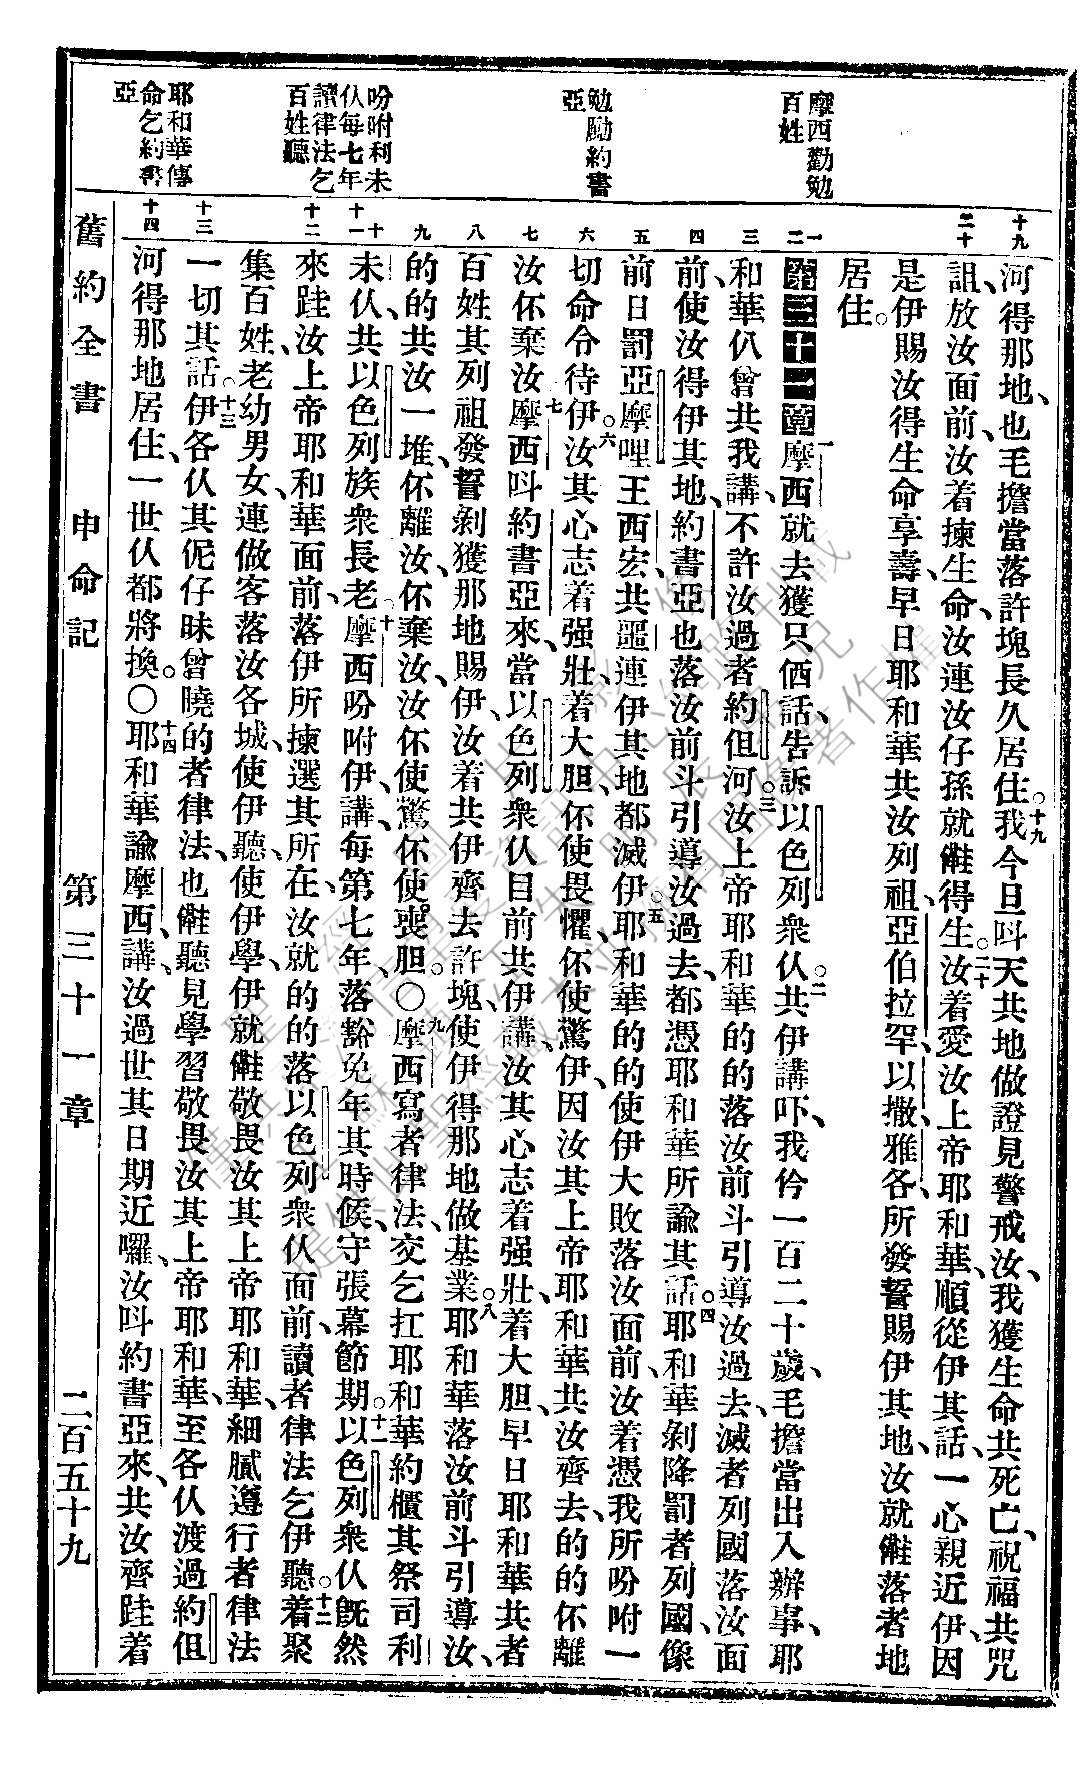 摩西勸勉
百姓
勉勵約書
亞
吩咐利未
仈每七年
讀律法乞
百姓聽
耶和華傳
命乞約書
亞
十九
二十
一
二
三
四
五
六
七
八
九
十
十一
十二
十三
十四
河得那地、也毛擔當落許塊長久居住。十九我今旦呌天共地做證見警戒汝、我獲生命共死亡、祝福共咒
詛、放汝面前、汝着揀生命、汝連汝仔孫就𠲥得生。二十汝着愛汝上帝耶和華、順從伊其話、一心親近伊、因
是伊賜汝得生命享壽、早日耶和華共汝列祖、亞伯拉罕、以撒、雅各、所發誓賜伊其地、汝就𠲥落者地
居住。
第三十一章一摩西就去獲只価話、告訴以色列衆仈。二共伊講吓、我伶一百二十歲、毛擔當出入辦事、耶
和華仈曾共我講、不許汝過者約但河。三汝上帝耶和華的的落汝前斗引導汝過去、滅者列國落汝面
前、使汝得伊其地、約書亞也落汝前斗引導汝過去、都憑耶和華所諭其話。四耶和華剝降罰者列國、像
前日罰亞摩哩王西宏、共噩、連伊其地都滅伊。五耶和華的的使伊大敗落汝面前、汝着憑我所吩咐一
切命令待伊。六汝其心志着强壯、着大胆、伓使畏懼、伓使驚伊、因汝其上帝耶和華共汝齊去、的的伓離
汝伓棄汝。七摩西呌約書亞來、當以色列衆仈目前共伊講、汝其心志着强壯、着大胆、早日耶和華共者
百姓其列祖發誓剝獲那地賜伊、汝着共伊齊去許塊、使伊得那地做基業。八耶和華落汝前斗引導汝、
的的共汝一堆、伓離汝、伓棄汝、汝伓使驚伓使喪胆。〇九摩西寫者律法、交乞扛耶和華約櫃其祭司利
未仈、共以色列族衆長老。十摩西吩咐伊講、每第七年、落豁免年其時候、守張幕節期。十一以色列衆仈旣然
來跬汝上帝耶和華面前、落伊所揀選其所在、汝就的的落以色列衆仈面前、讀者律法乞伊聽。十二着聚
集百姓、老幼男女、連做客落汝各城、使伊聽、使伊學、伊就𠲥敬畏汝其上帝耶和華、細膩遵行者律法
一切其話。十三伊各仈其伲仔昧曾曉的者律法、也𠲥聽見學習敬畏汝其上帝耶和華、至各仈渡過約但
河得那地居住、一世仈都將換。〇十四耶和華諭摩西講、汝過世其日期近囉、汝呌約書亞來、共汝齊跬着
舊約全書　申命記　第三十一章　二百五十九